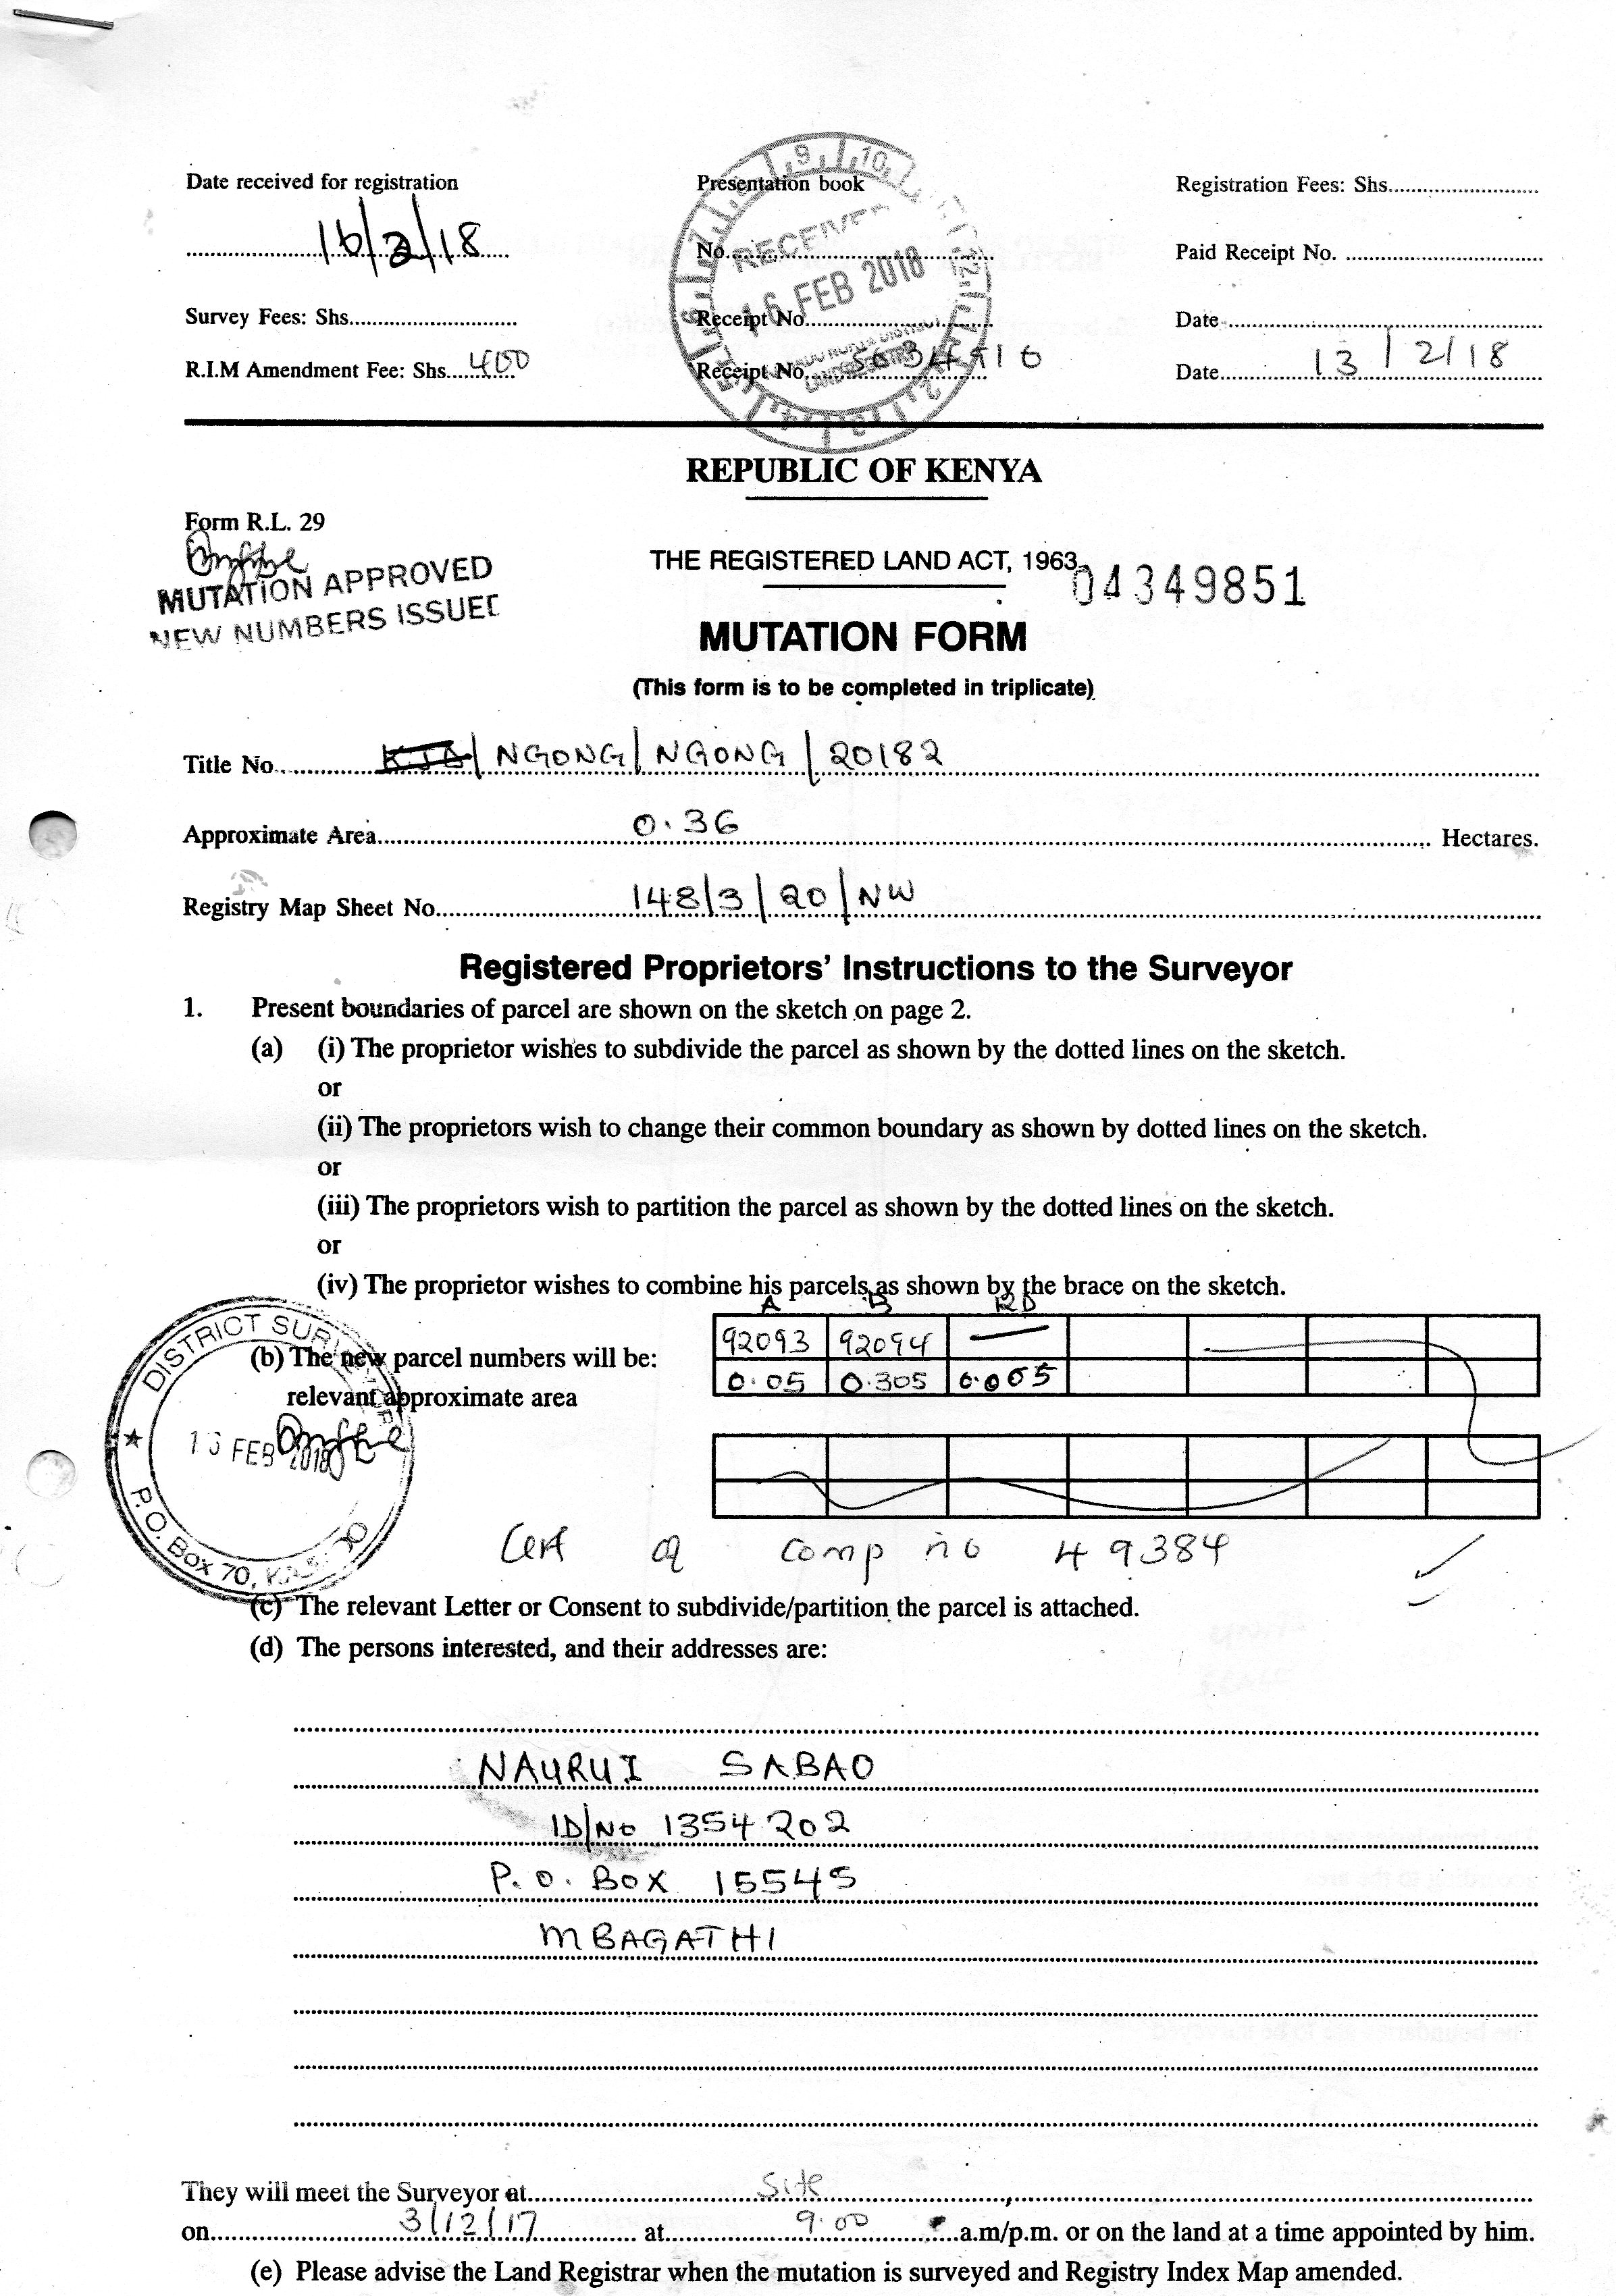 Date received for registration
16/2/18
Survey Fees: Shs
R.I.M Amendment Fee: Shs 400
Presentation book
No
Receipt No
Receipt No
RECEIVED
16 FEB 2018
LAND REGISTRY
Registration Fees: Shs
Paid Receipt No.
Date
Date 13/2/18
REPUBLIC OF KENYA
Form R.L. 29
MUTATION APPROVED
NEW NUMBERS ISSUED
THE REGISTERED LAND ACT, 1963
04349851
MUTATION FORM
(This form is to be completed in triplicate)
Title No. KJD/NGONG/NGONG/20182
Approximate Area 0.36 Hectares.
Registry Map Sheet No. 148/3/20/NW
Registered Proprietors' Instructions to the Surveyor
1. Present boundaries of parcel are shown on the sketch on page 2.
(a) (i) The proprietor wishes to subdivide the parcel as shown by the dotted lines on the sketch.
or
(ii) The proprietors wish to change their common boundary as shown by dotted lines on the sketch.
or
(iii) The proprietors wish to partition the parcel as shown by the dotted lines on the sketch.
or
(iv) The proprietor wishes to combine his parcels as shown by the brace on the sketch.
A B RD
(b) The new parcel numbers will be: 92093 92094 —
relevant approximate area 0.05 0.305 0.005
DISTRICT SURVEYOR
FEB 2018
P.O. Box 70,
Cert of Comp no 49384
(c) The relevant Letter or Consent to subdivide/partition the parcel is attached.
(d) The persons interested, and their addresses are:
NAURUI SABAO
ID/No 1354202
P.O. BOX 15545
MBAGATHI
They will meet the Surveyor at Site
on 3/12/17 at 9.00 a.m/p.m. or on the land at a time appointed by him.
(e) Please advise the Land Registrar when the mutation is surveyed and Registry Index Map amended.